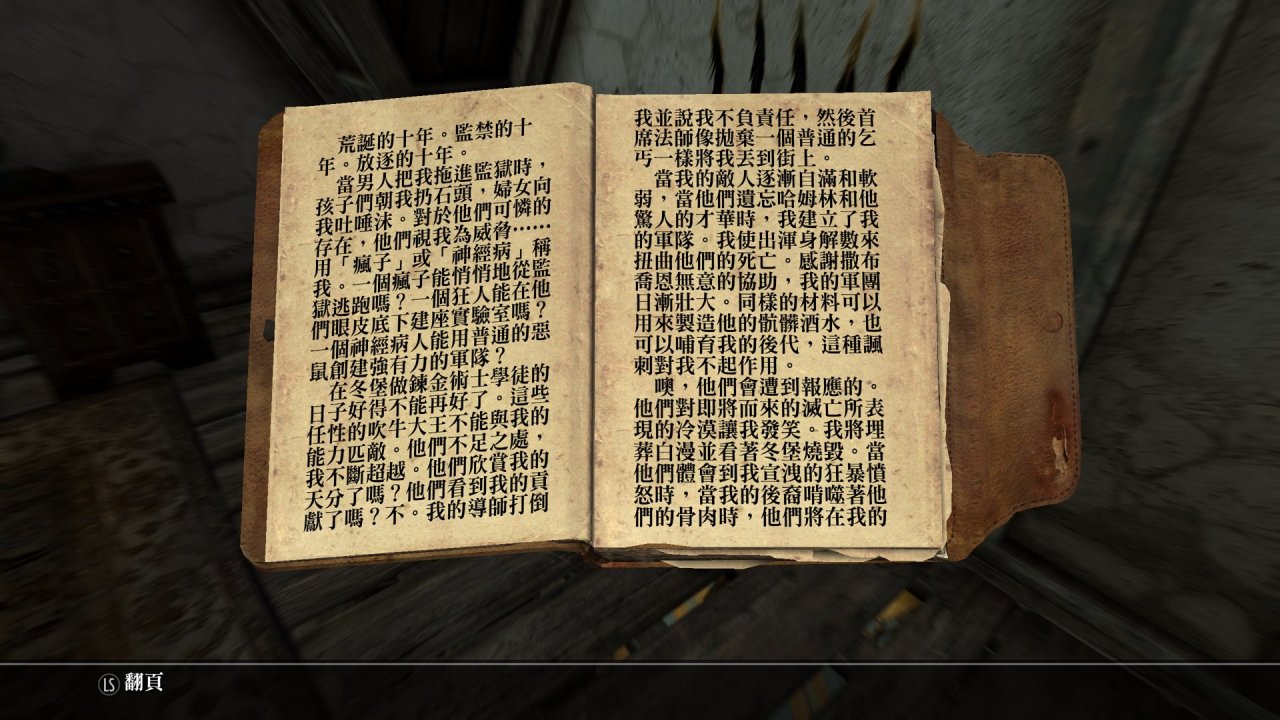 荒誕的十年。監禁的十
年。放逐的十年。
當男人把我拖進監獄時，
孩子們朝我扔石頭，婦女向
我吐唾沫。對於他們可憐的
存在，他們視我為威脅……
用「瘋子」或「神經病」稱
我。一個瘋子能悄悄地從監
獄逃跑嗎？一個狂人能在他
們眼皮底下建座實驗室嗎？
一個神經病人能用普通的惡
鼠創建強有力的軍隊？
在冬堡做鍊金術士學徒的
日子好得不能再好了。這些
任性的吹牛大王不能與我的
能力匹敵。他們不足之處，
我不斷超越。他們欣賞我的
天分了嗎？他們看到我的貢
獻了嗎？不。我的導師打倒
我並說我不負責任，然後首
席法師像拋棄一個普通的乞
丐一樣將我丟到街上。
當我的敵人逐漸自滿和軟
弱，當他們遺忘哈姆林和他
驚人的才華時，我建立了我
的軍隊。我使出渾身解數來
扭曲他們的死亡。感謝撒布
喬恩無意的協助，我的軍團
日漸壯大。同樣的材料可以
用來製造他的骯髒酒水，也
可以哺育我的後代，這種諷
刺對我不起作用。
噢，他們會遭到報應的。
他們對即將而來的滅亡所表
現的冷漠讓我發笑。我將埋
葬白漫並看著冬堡燒毀。當
他們體會到我宣洩的狂暴憤
怒時，當我的後裔啃噬著他
們的骨肉時，他們將在我的
LS 翻頁